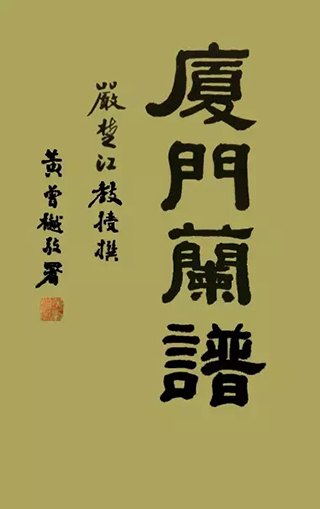 廈門蘭譜
嚴楚江教授撰
黃曾樾敬署